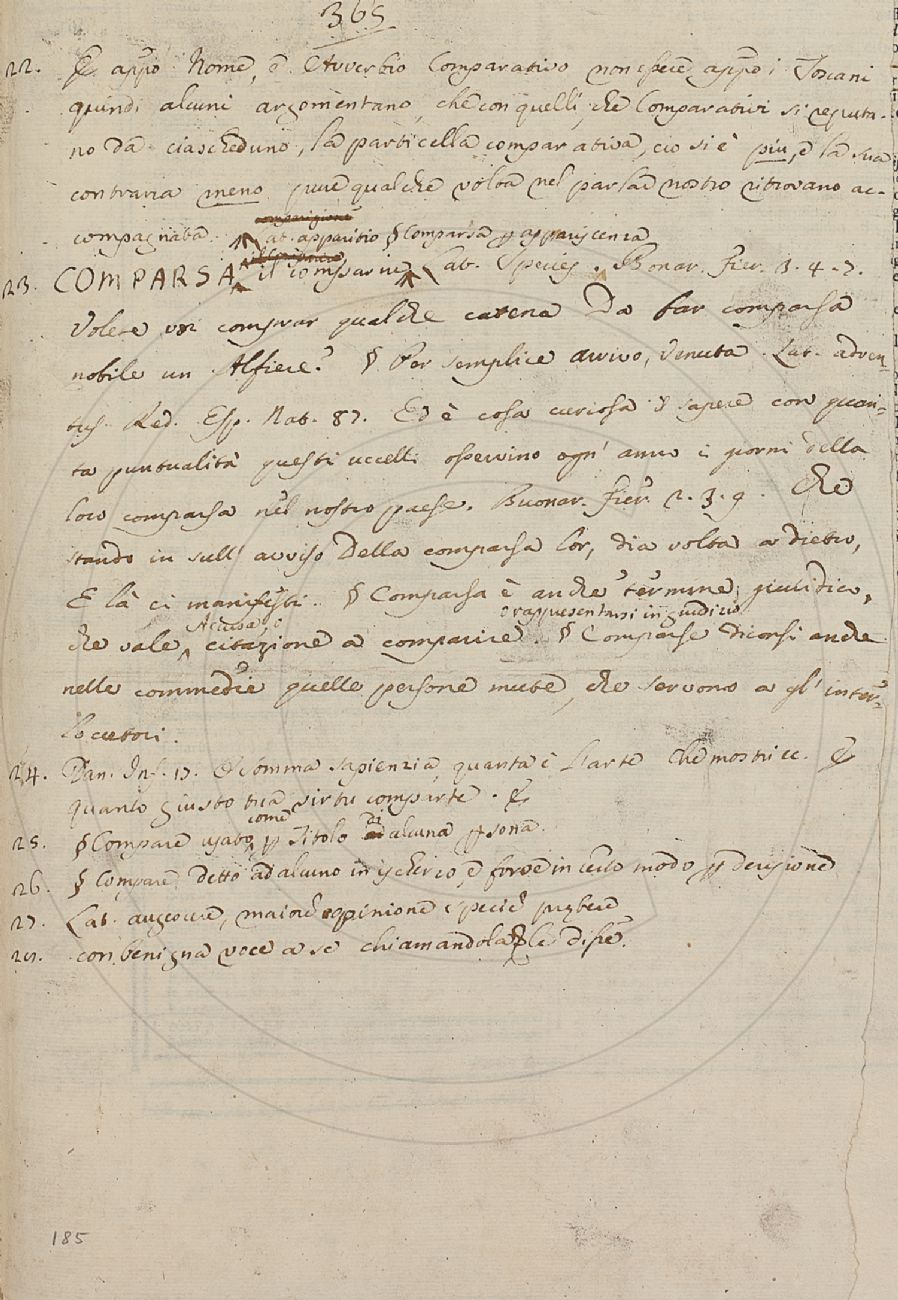 365
22. appō Nome, ò Avverbio Comparativo non essere appō i Toscani
quindi alcuni argomentano, che con quelli, che Comparativi si reputa-
no da ciascheduno, la particella comparativa, cio si è più, e la sua
contraria meno pure qualche volta nel parlare nostro ritrovano ac-
comparigione
compagnata. Lat. apparitio § Comparsa ꝑ appariscenza
23. COMPARSA il comparire Lat. Species. Bonar. fier. 3. 4. 7.
Volete voi comprar qualche catena Da far comparsa
nobile un Alfiere? § Per semplice arrivo, Venuta. Lat. adven-
tus. Red. Esp. Nat. 87. Ed è cosa curiosa il sapere con quan-
ta puntualità questi uccelli osservino ogn' anno i giorni della
loro comparsa nel nostro paese. Buonar. fier. 2. 3. 9. Che
stando in sull' avviso Della comparsa lor, dia volta a dietro,
E là ci manifesti. § Comparsa è anche termine giuridico,
Accusa, o o rappresentarsi in giudicio
che vale citazione a comparire § Comparse diconsi anche
nelle commedie quelle persone mute, che servono a gl' inter-
locutori.
24. Dan. Inf. 19. O somma sapienzia, quanta è L'arte Che mostri ec. E
quanto giusto tua virtù comparte. E
come
25. § Compare usato ꝑ Titolo ad alcuna ꝑsona.
26. § Compare detto ad alcuno in ischerzo, e forse in certo modo ꝑ derisione
27. Lat. augere, maiorē opinionē speciē prębere
con benigna voce a se chiamandola le disse.
185